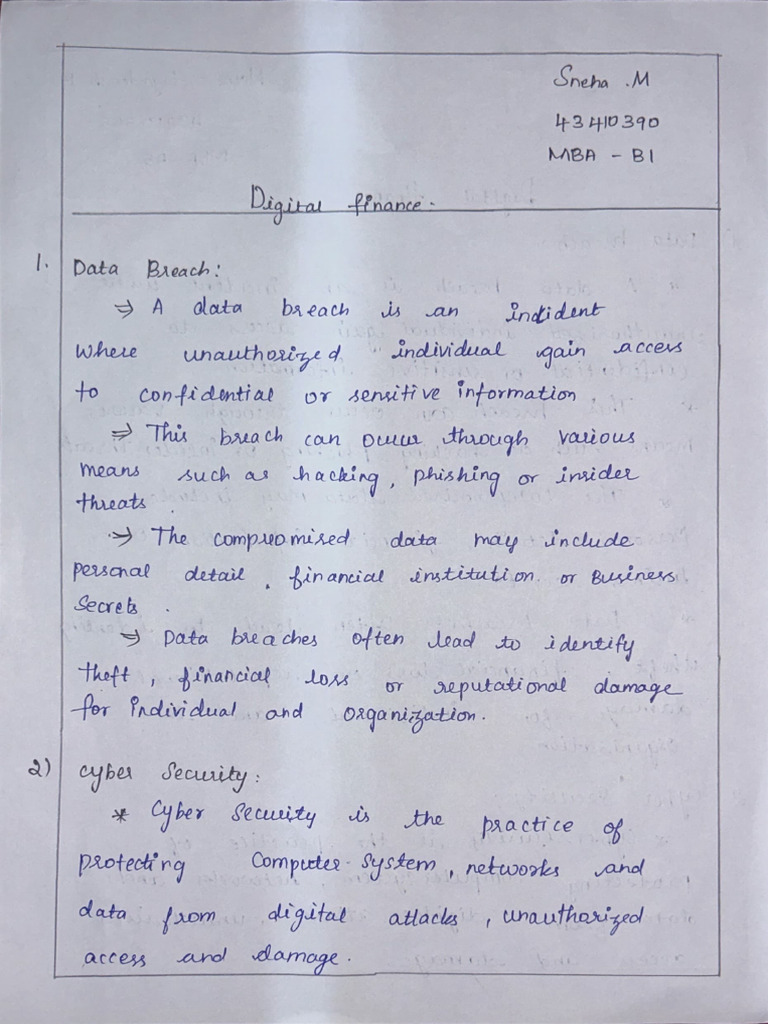 Sneha .M
43410390
MBA - B1
Digital finance.
1. Data Breach:
⇒ A data breach is an incident
where unauthorized individual gain access
to confidential or sensitive information
⇒ This breach can occur through various
means such as hacking, phishing or insider
threats.
⇒ The compromised data may include
personal detail, financial institution or Business
Secrets.
⇒ Data breaches often lead to identify
theft, financial loss or reputational damage
for individual and organization.
2) Cyber Security:
* Cyber Security is the practice of
protecting Computer System, networks and
data from digital attacks, unauthorized
access and damage.